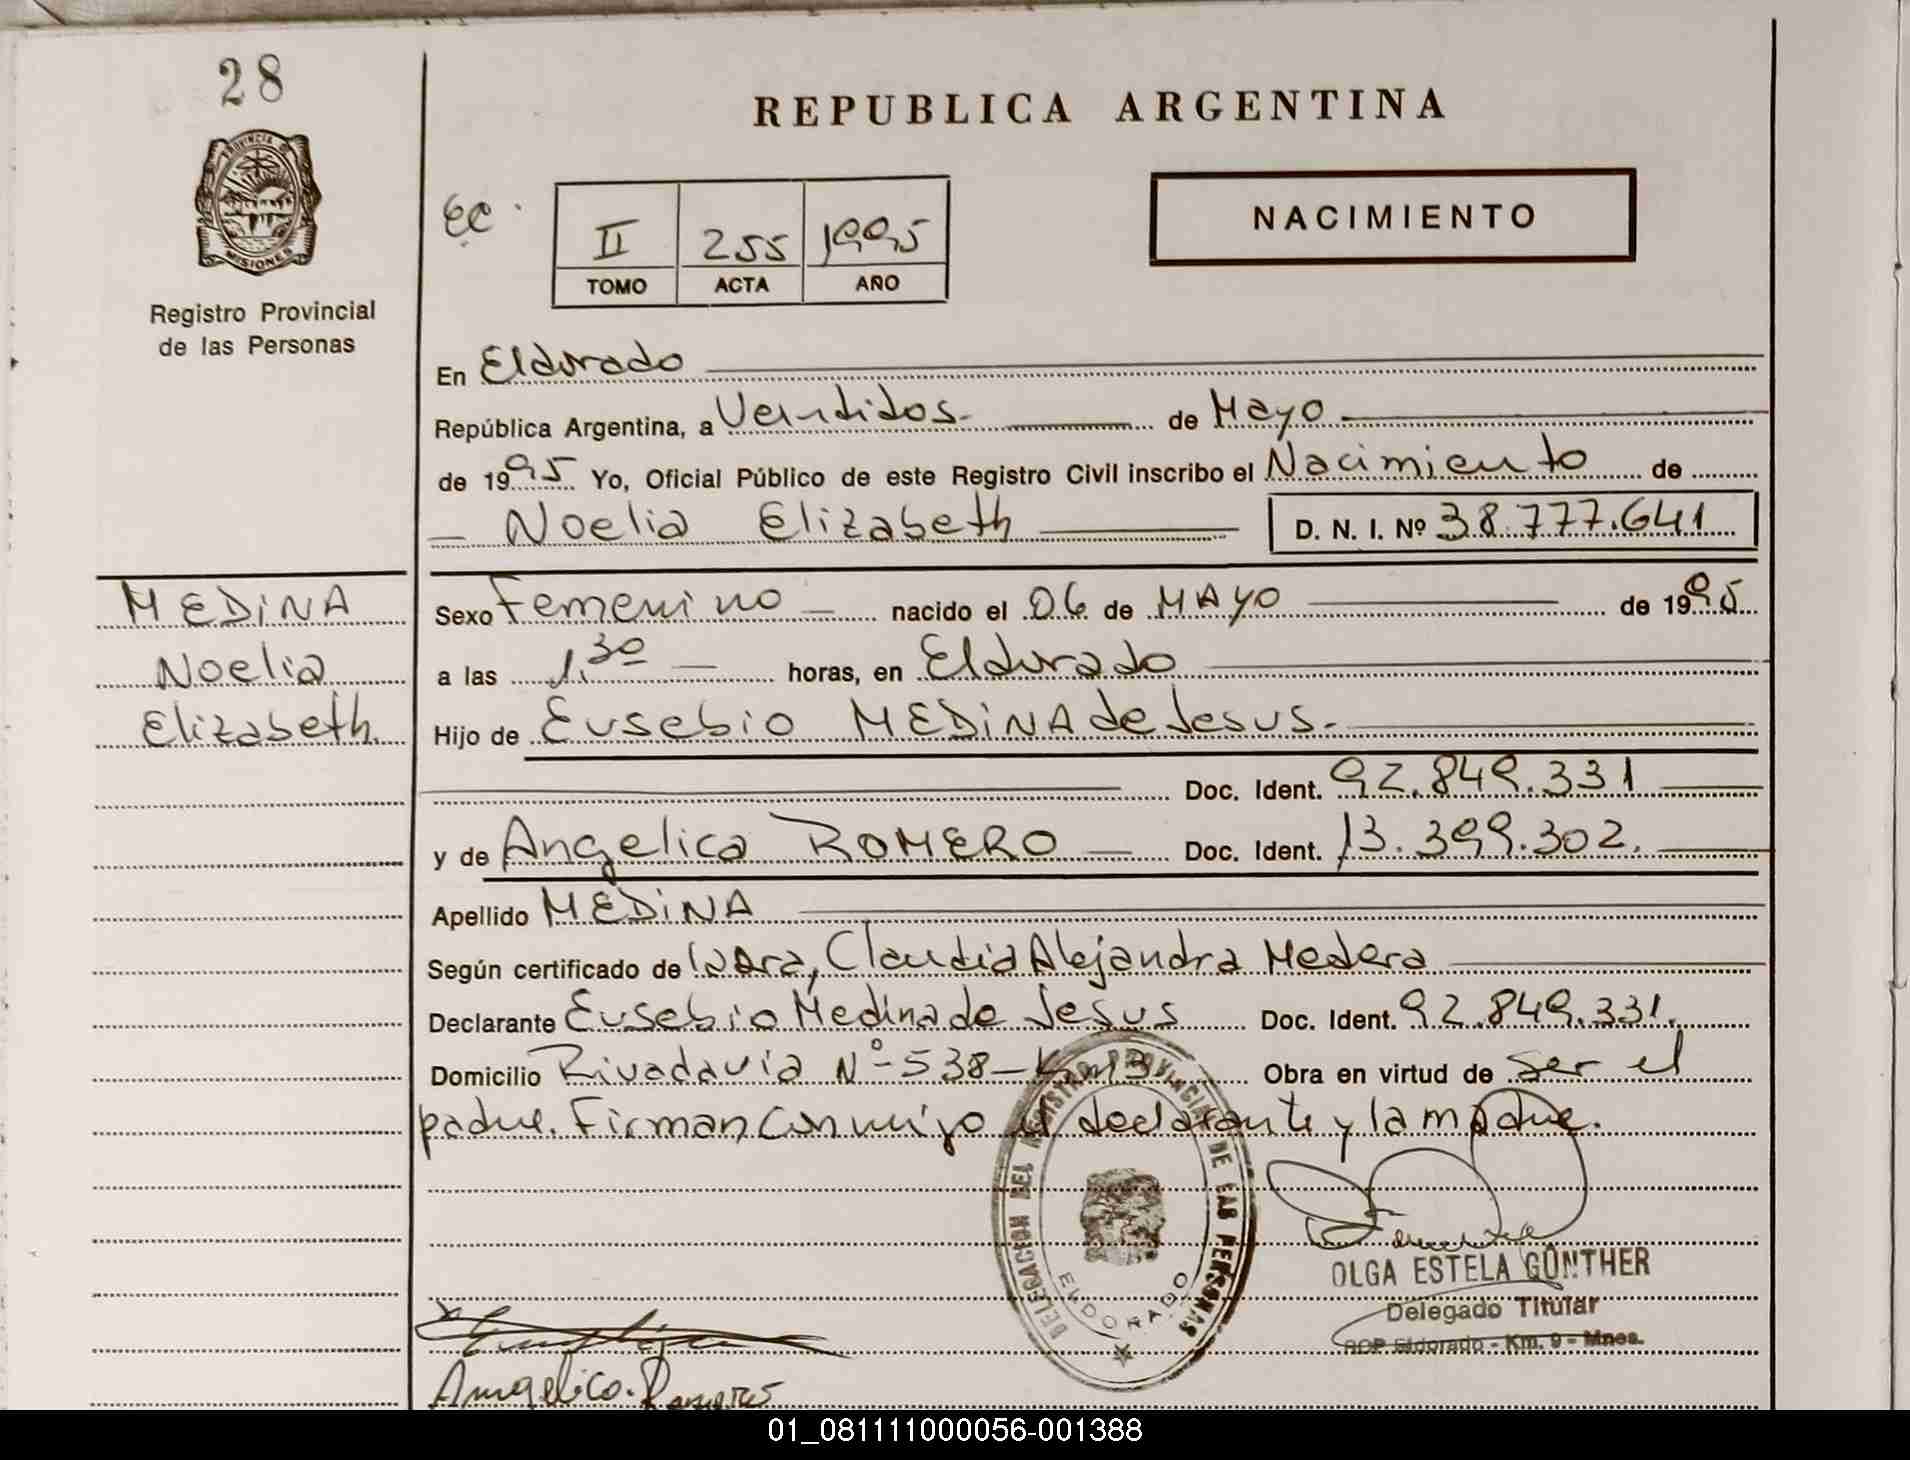 28
REPUBLICA ARGENTINA
PROVINCIA DE
MISIONES
Registro Provincial
de las Personas
EC
II 255 1995
TOMO ACTA AÑO
NACIMIENTO
En Eldorado
República Argentina, a Veintidos.- de Mayo
de 1995 Yo, Oficial Público de este Registro Civil inscribo el Nacimiento de
Noelia Elizabeth D. N. I. Nº 38.777.641
MEDINA
Noelia
Elizabeth.
Sexo Femenino nacido el 06 de MAYO de 1995
a las 1.30 horas, en Eldorado
Hijo de Eusebio MEDINA de Jesus.-
Doc. Ident. 92.849.331
y de Angelica ROMERO Doc. Ident. 13.399.302.
Apellido MEDINA
Según certificado de Claudia Alejandra Medera
Declarante Eusebio Medina de Jesus Doc. Ident. 92.849.331.
Domicilio Rivadavia Nº 538 - Km 13 Obra en virtud de ser el
padre. Firman conmigo el declarante y la madre.
DELEGACION DEL REGISTRO PROVINCIAL DE LAS PERSONAS
ELDORADO
OLGA ESTELA GÜNTHER
Delegado Titular
RCP Eldorado - Km. 9 - Mnes.
Angelica Romero
01_081111000056-001388